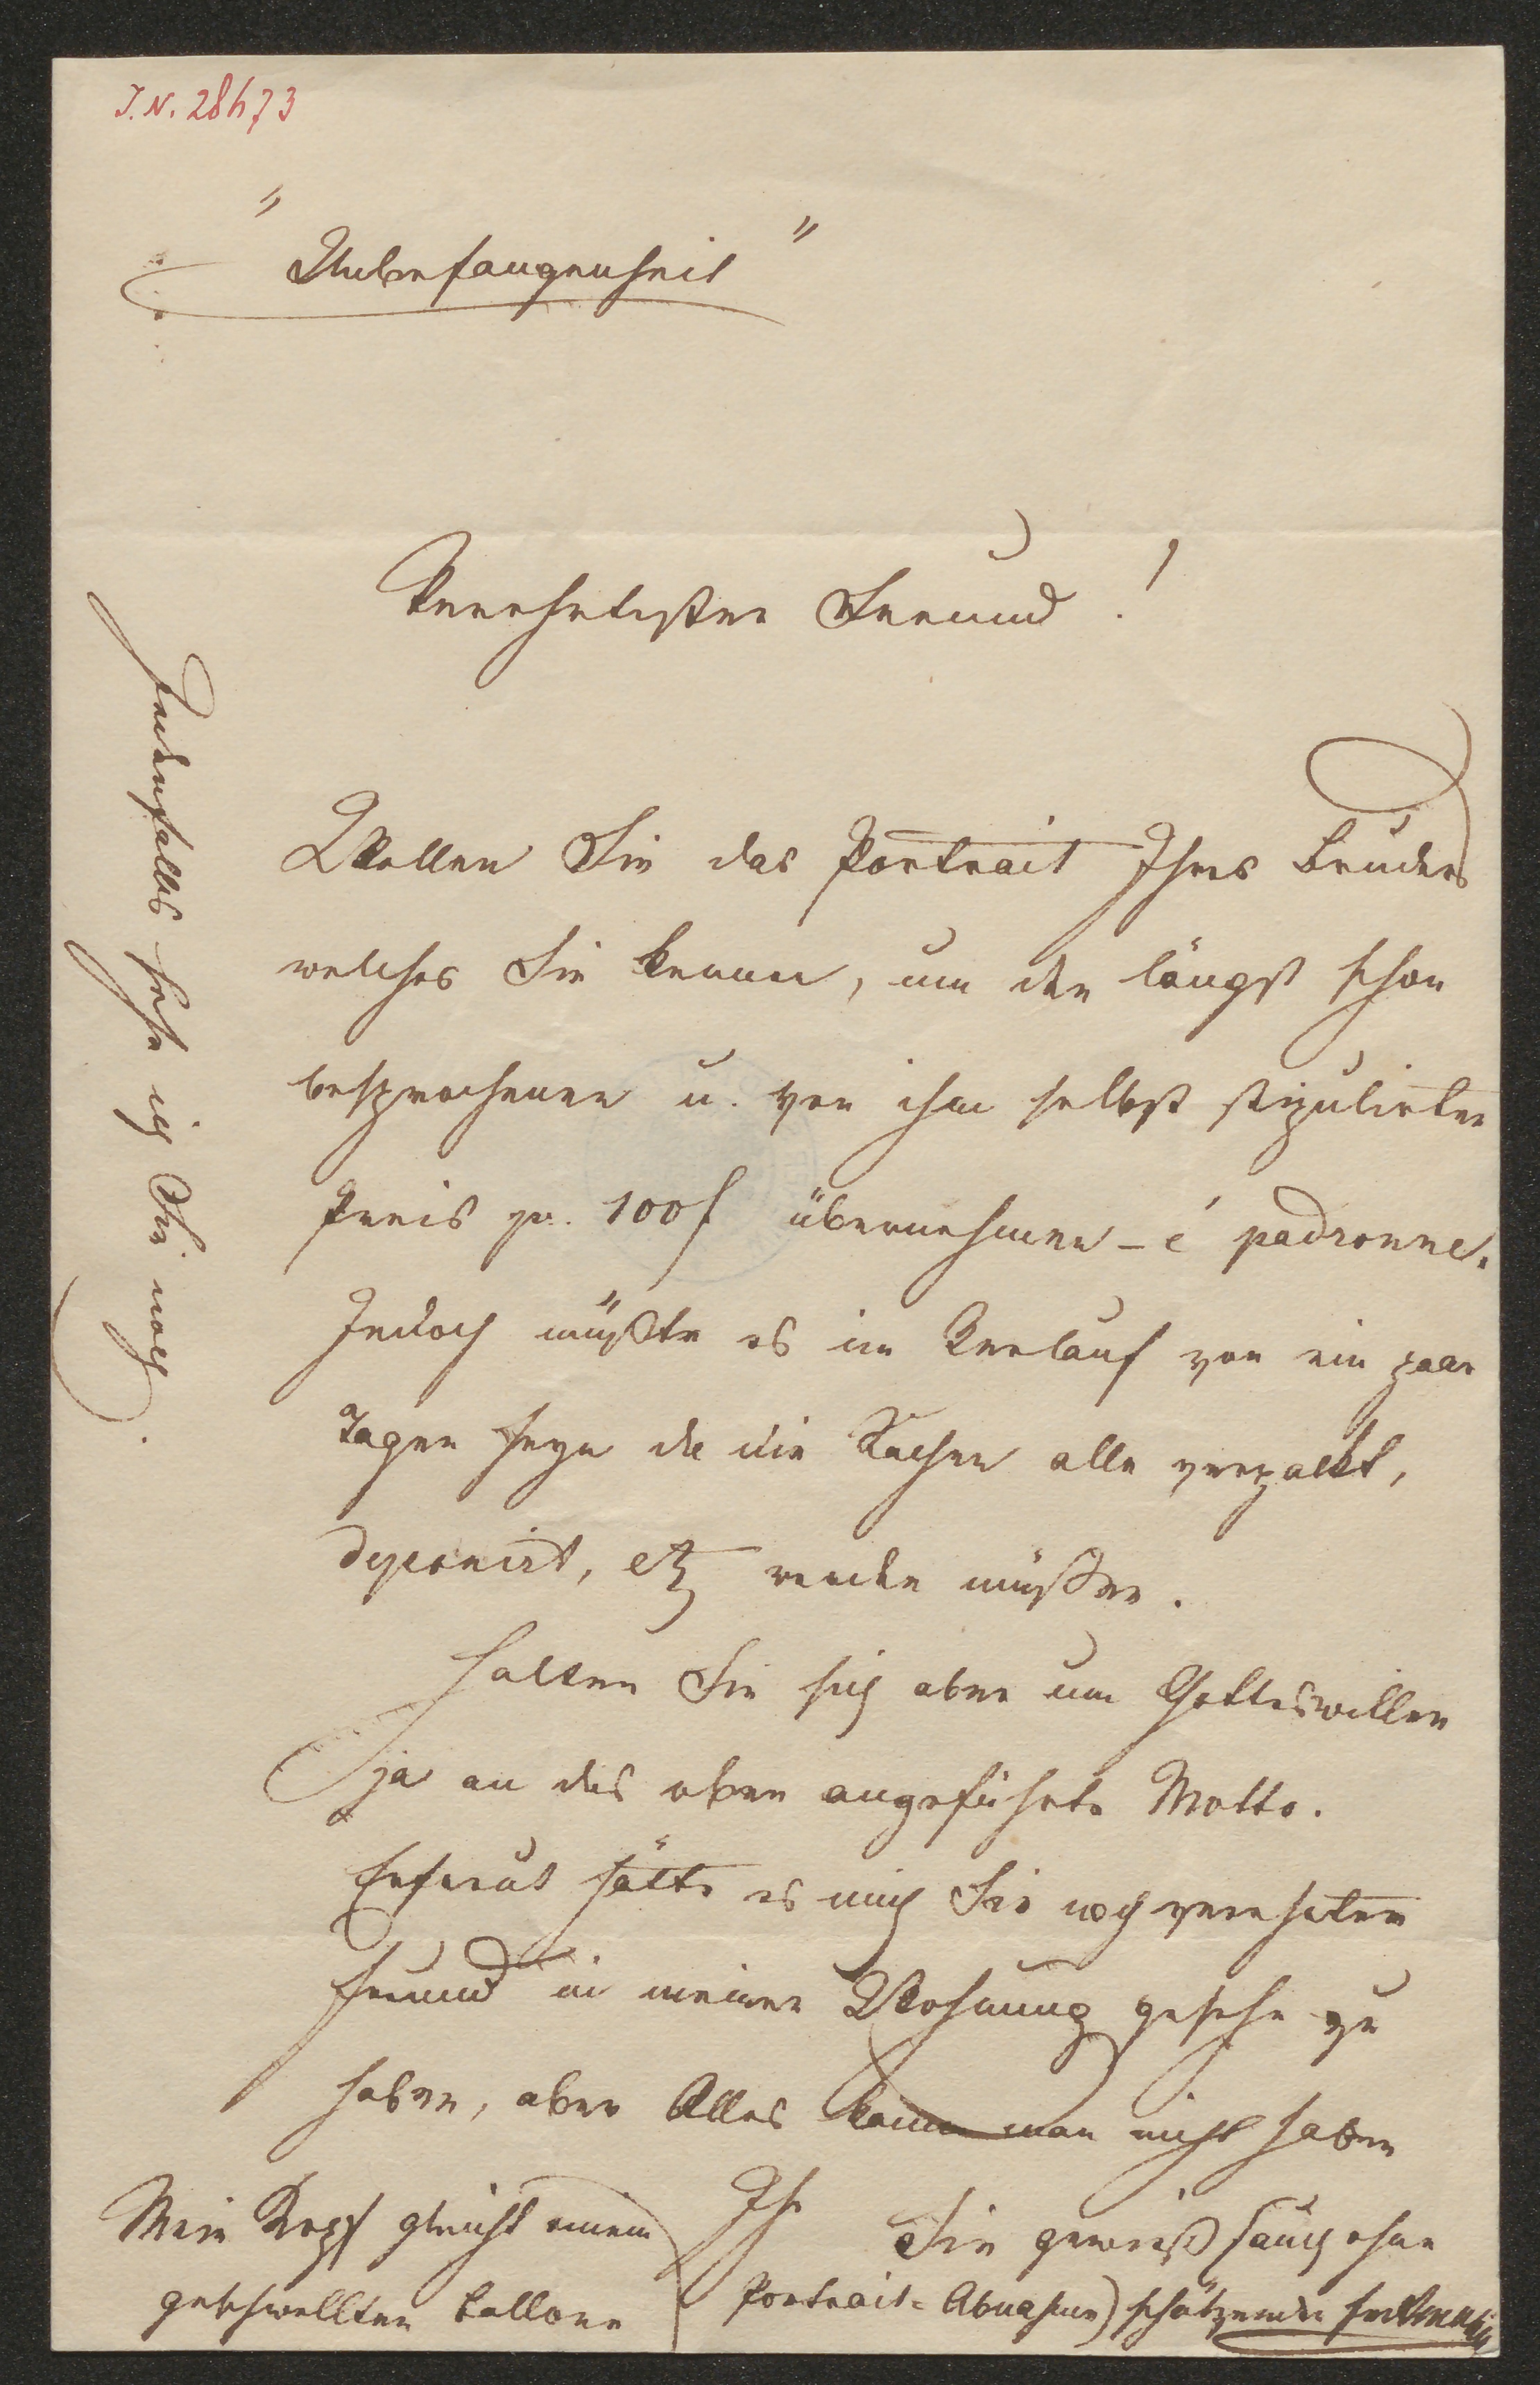 I. N. 28473
"Unbefangenheit"
Verehrtester Freund!
Wollen Sie das Portrait Ihres Bruders
welches Sie kennen, um den längst schon
besprochenen u. von ihm selbst stipulirten
Preis pr. 100 f übernehmen – é padronne.
Jedoch müßte es im Verlauf von ein paar
Tagen seyn da die Sachen alle verpackt,
deponirt, etz werden müßen.
Halten Sie sich aber um Gotteswillen
ja an das oben angeführte Motto.
Erfreut hätte es mich Sie noch verehrter
Freund in meiner Wohnung gesehn zu
haben, aber Alles kann man nicht haben
Ihr Sie gewiß (auch ohne
Portrait-Abnahme) schätzender
Mein Kopf gleicht einem
geschwellten Ballone
Jedenfalls sehe ich Sie noch.